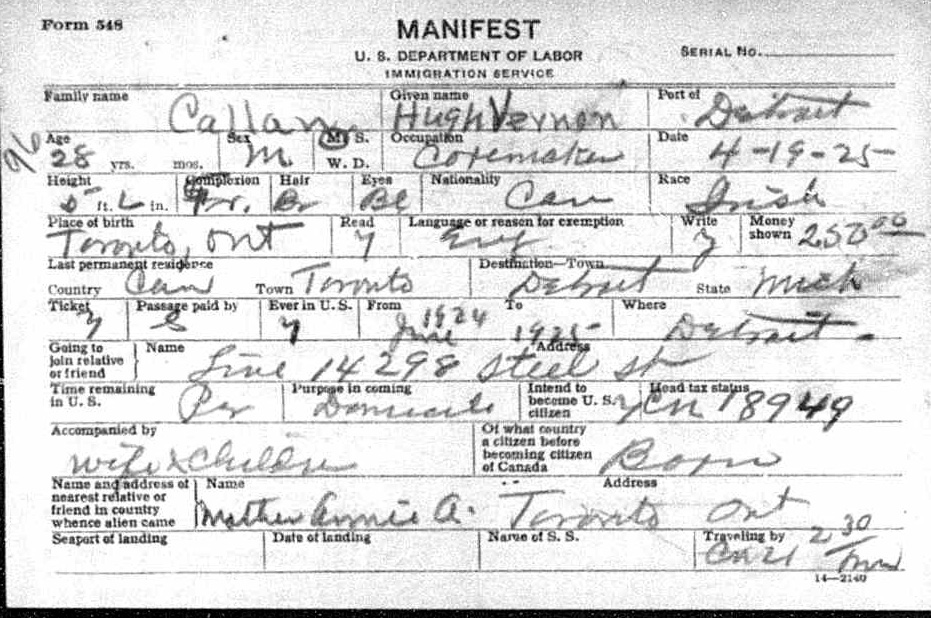 Form 548
MANIFEST
U. S. DEPARTMENT OF LABOR
SERIAL No.
IMMIGRATION SERVICE
Family name Callan Given name Hugh Vernon Port of Detroit
96
Age 28 yrs. mos. Sex M M S. W. D. Occupation Coremaker Date 4-19-25
Height 5 ft. in. Complexion Fr. Hair Br Eyes Bl Nationality Can Race Irish
Place of birth Toronto, Ont Read y Language or reason for exemption Eng Write y Money shown 250 00
Last permanent residence Country Can Town Toronto Destination—Town Detroit State Mich
Ticket y Passage paid by S Ever in U.S. y From June 1924 To 1925 Where Detroit
Going to join relative or friend Name Live 14298 Steel St Address
Time remaining in U. S. Per Purpose in coming Domicile Intend to become U. S. citizen y Head tax status 18949
Accompanied by Wife & Children Of what country a citizen before becoming citizen of Canada Born
Name and address of nearest relative or friend in country whence alien came Name Mother Annie A. Address Toronto Ont
Seaport of landing Date of landing Name of S. S. Traveling by 2 30
14—2140